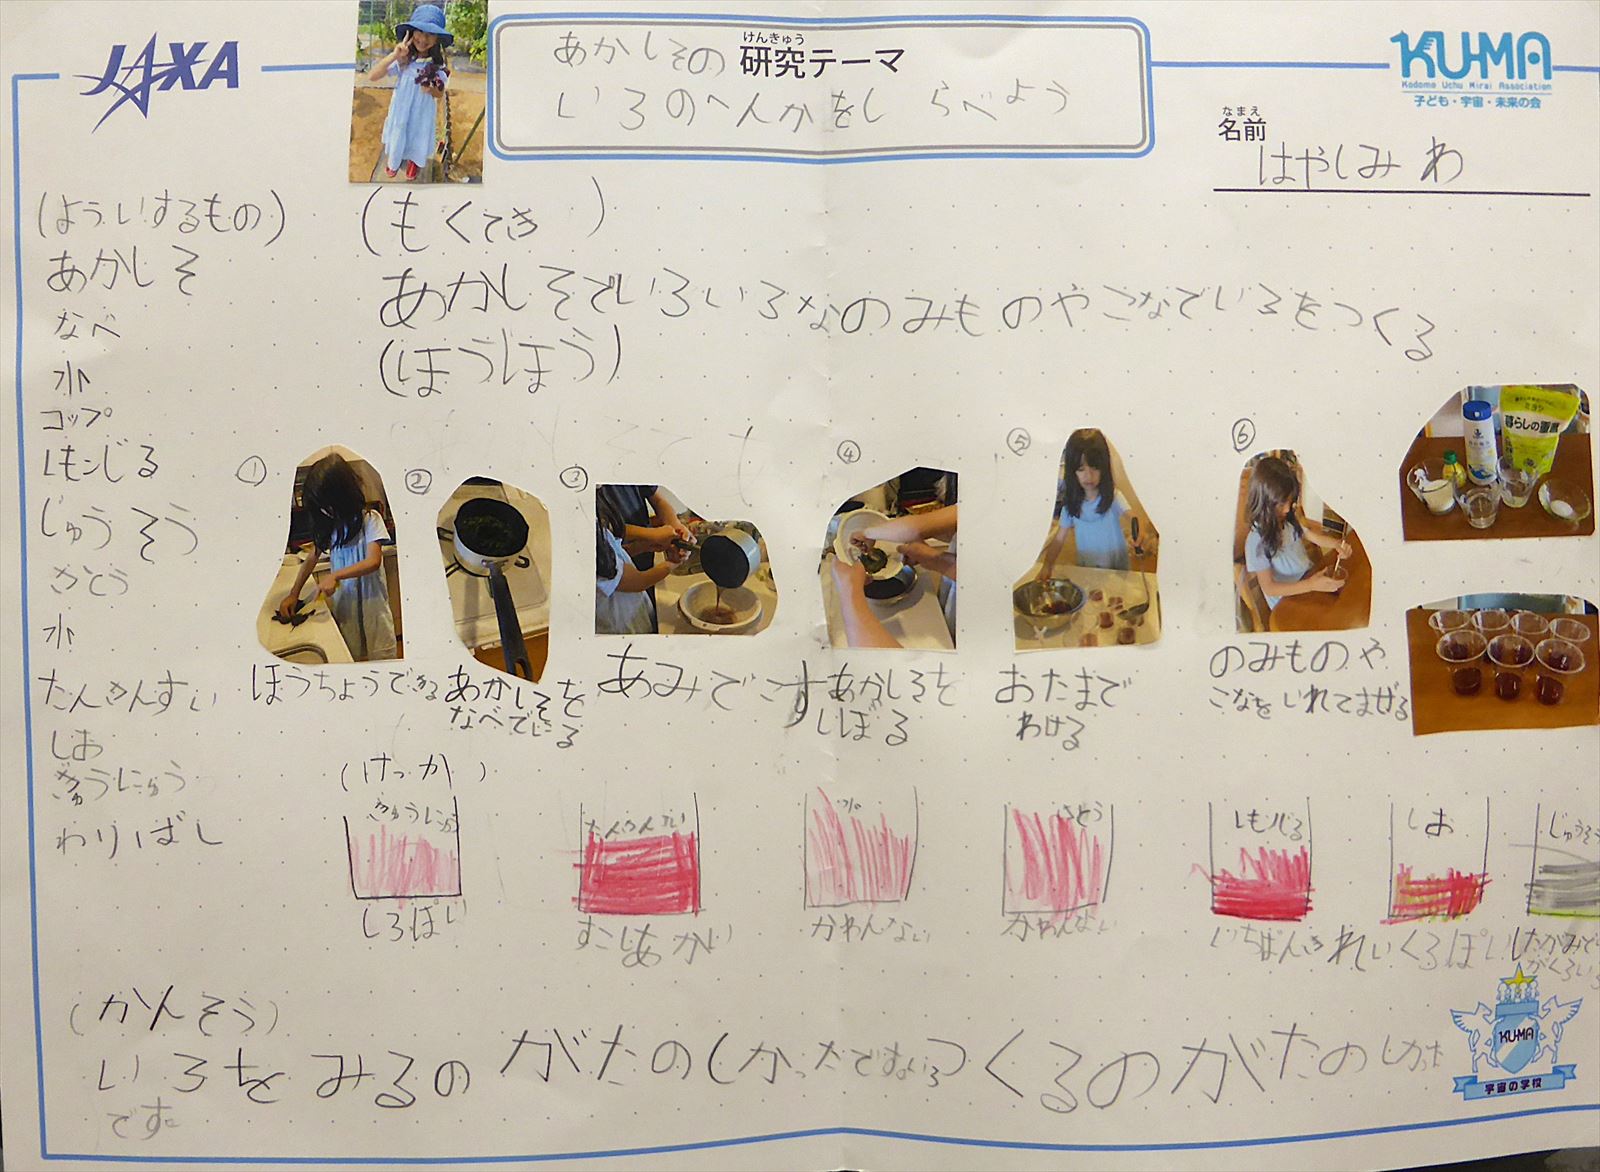 JAXA
けんきゅう
あかしその 研究テーマ
いろのへんかをしらべよう
KU-MA
Kodomo Uchu Mirai Association
子ども・宇宙・未来の会
なまえ
名前
はやしみわ
(よういするもの)
あかしそ
なべ
水
コップ
れもんじる
じゅうそう
さとう
水
たんさんすい
しお
ぎゅうにゅう
わりばし
(もくてき)
あかしそでいろいろなのみものやこなでいろをつくる
(ほうほう)
①
ほうちょうできる
②
あかしそを
なべでにる
③
あみでこす
④
あかしそを
しぼる
⑤
おたまで
わける
⑥
のみものや
こなをいれてまぜる
暮らしの重曹
(けっか)
ぎゅうにゅう
しろぽい
たんさんすい
すこしあかい
水
かわんない
さとう
かわんない
れもんじる
いちばんきれい
しお
くろぽい
じゅうそう
(かんそう)
いろをみるのがたのしかったですいろつくるのがたのしかた
です
KU-MA
宇宙の学校